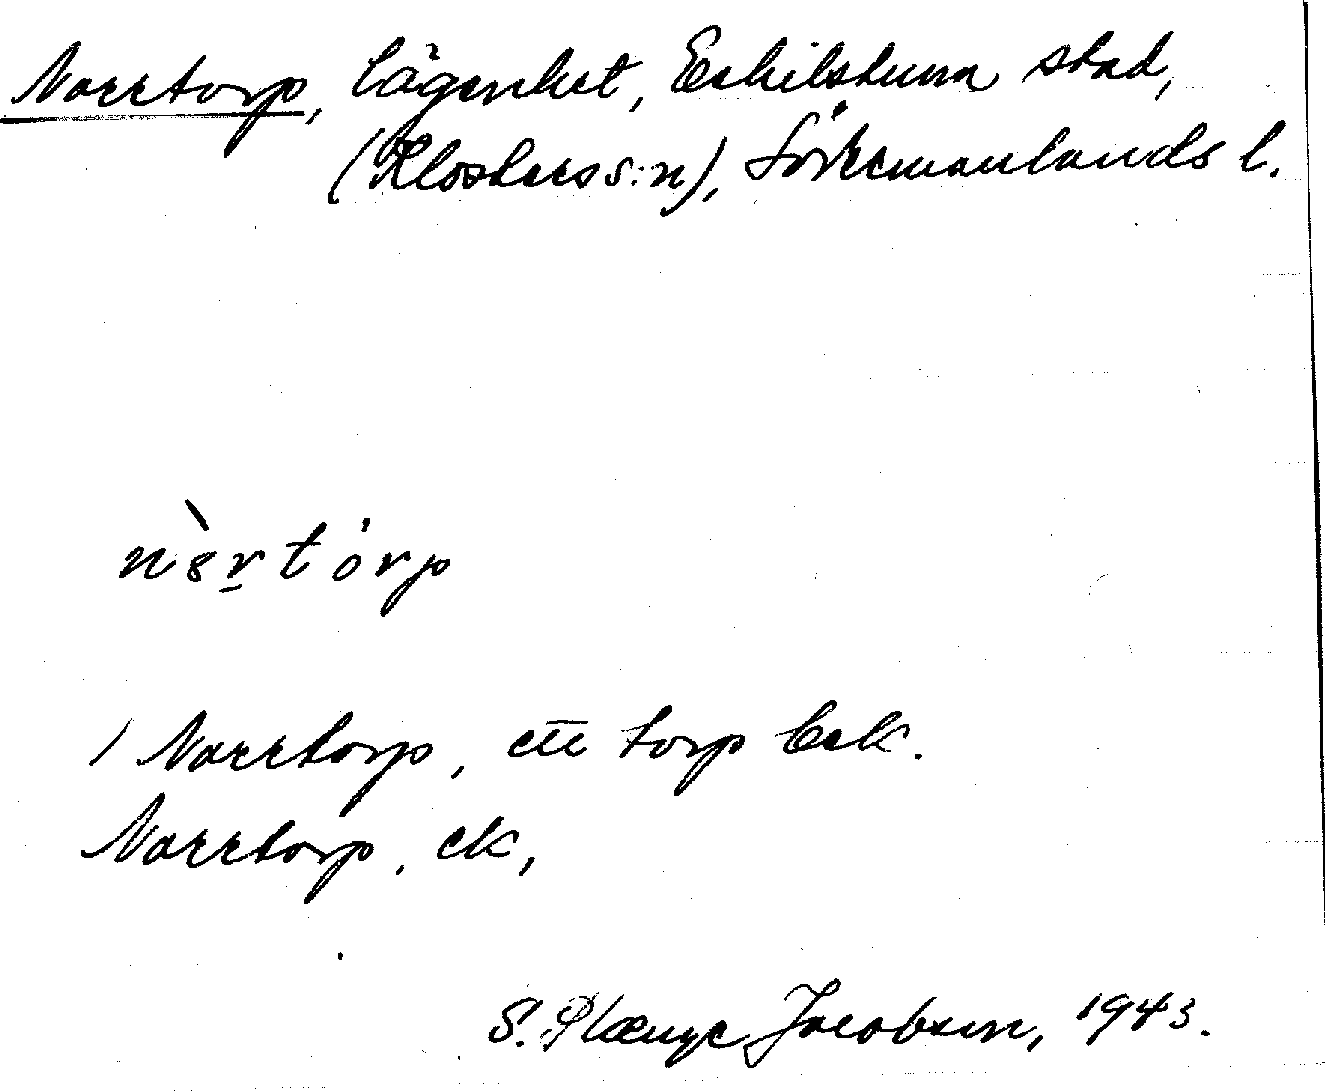 Norrtorp, lägenhet, Eskilstuna stad,
(Klosters s:n), Södermanlands l.
Norrtorp, ett torp bek.
Norrtorp, ek,
S. Plænge Jacobson, 1943.